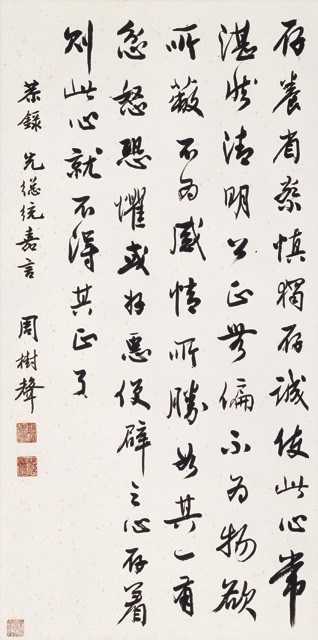 存養省察慎獨存誠使此心常
湛然清明公正無偏不為物欲
所蔽不為感情所勝如其一有
忿怒恐懼或好惡便辟之心存着
則此心就不得其正了
恭錄 先總統嘉言 周樹聲